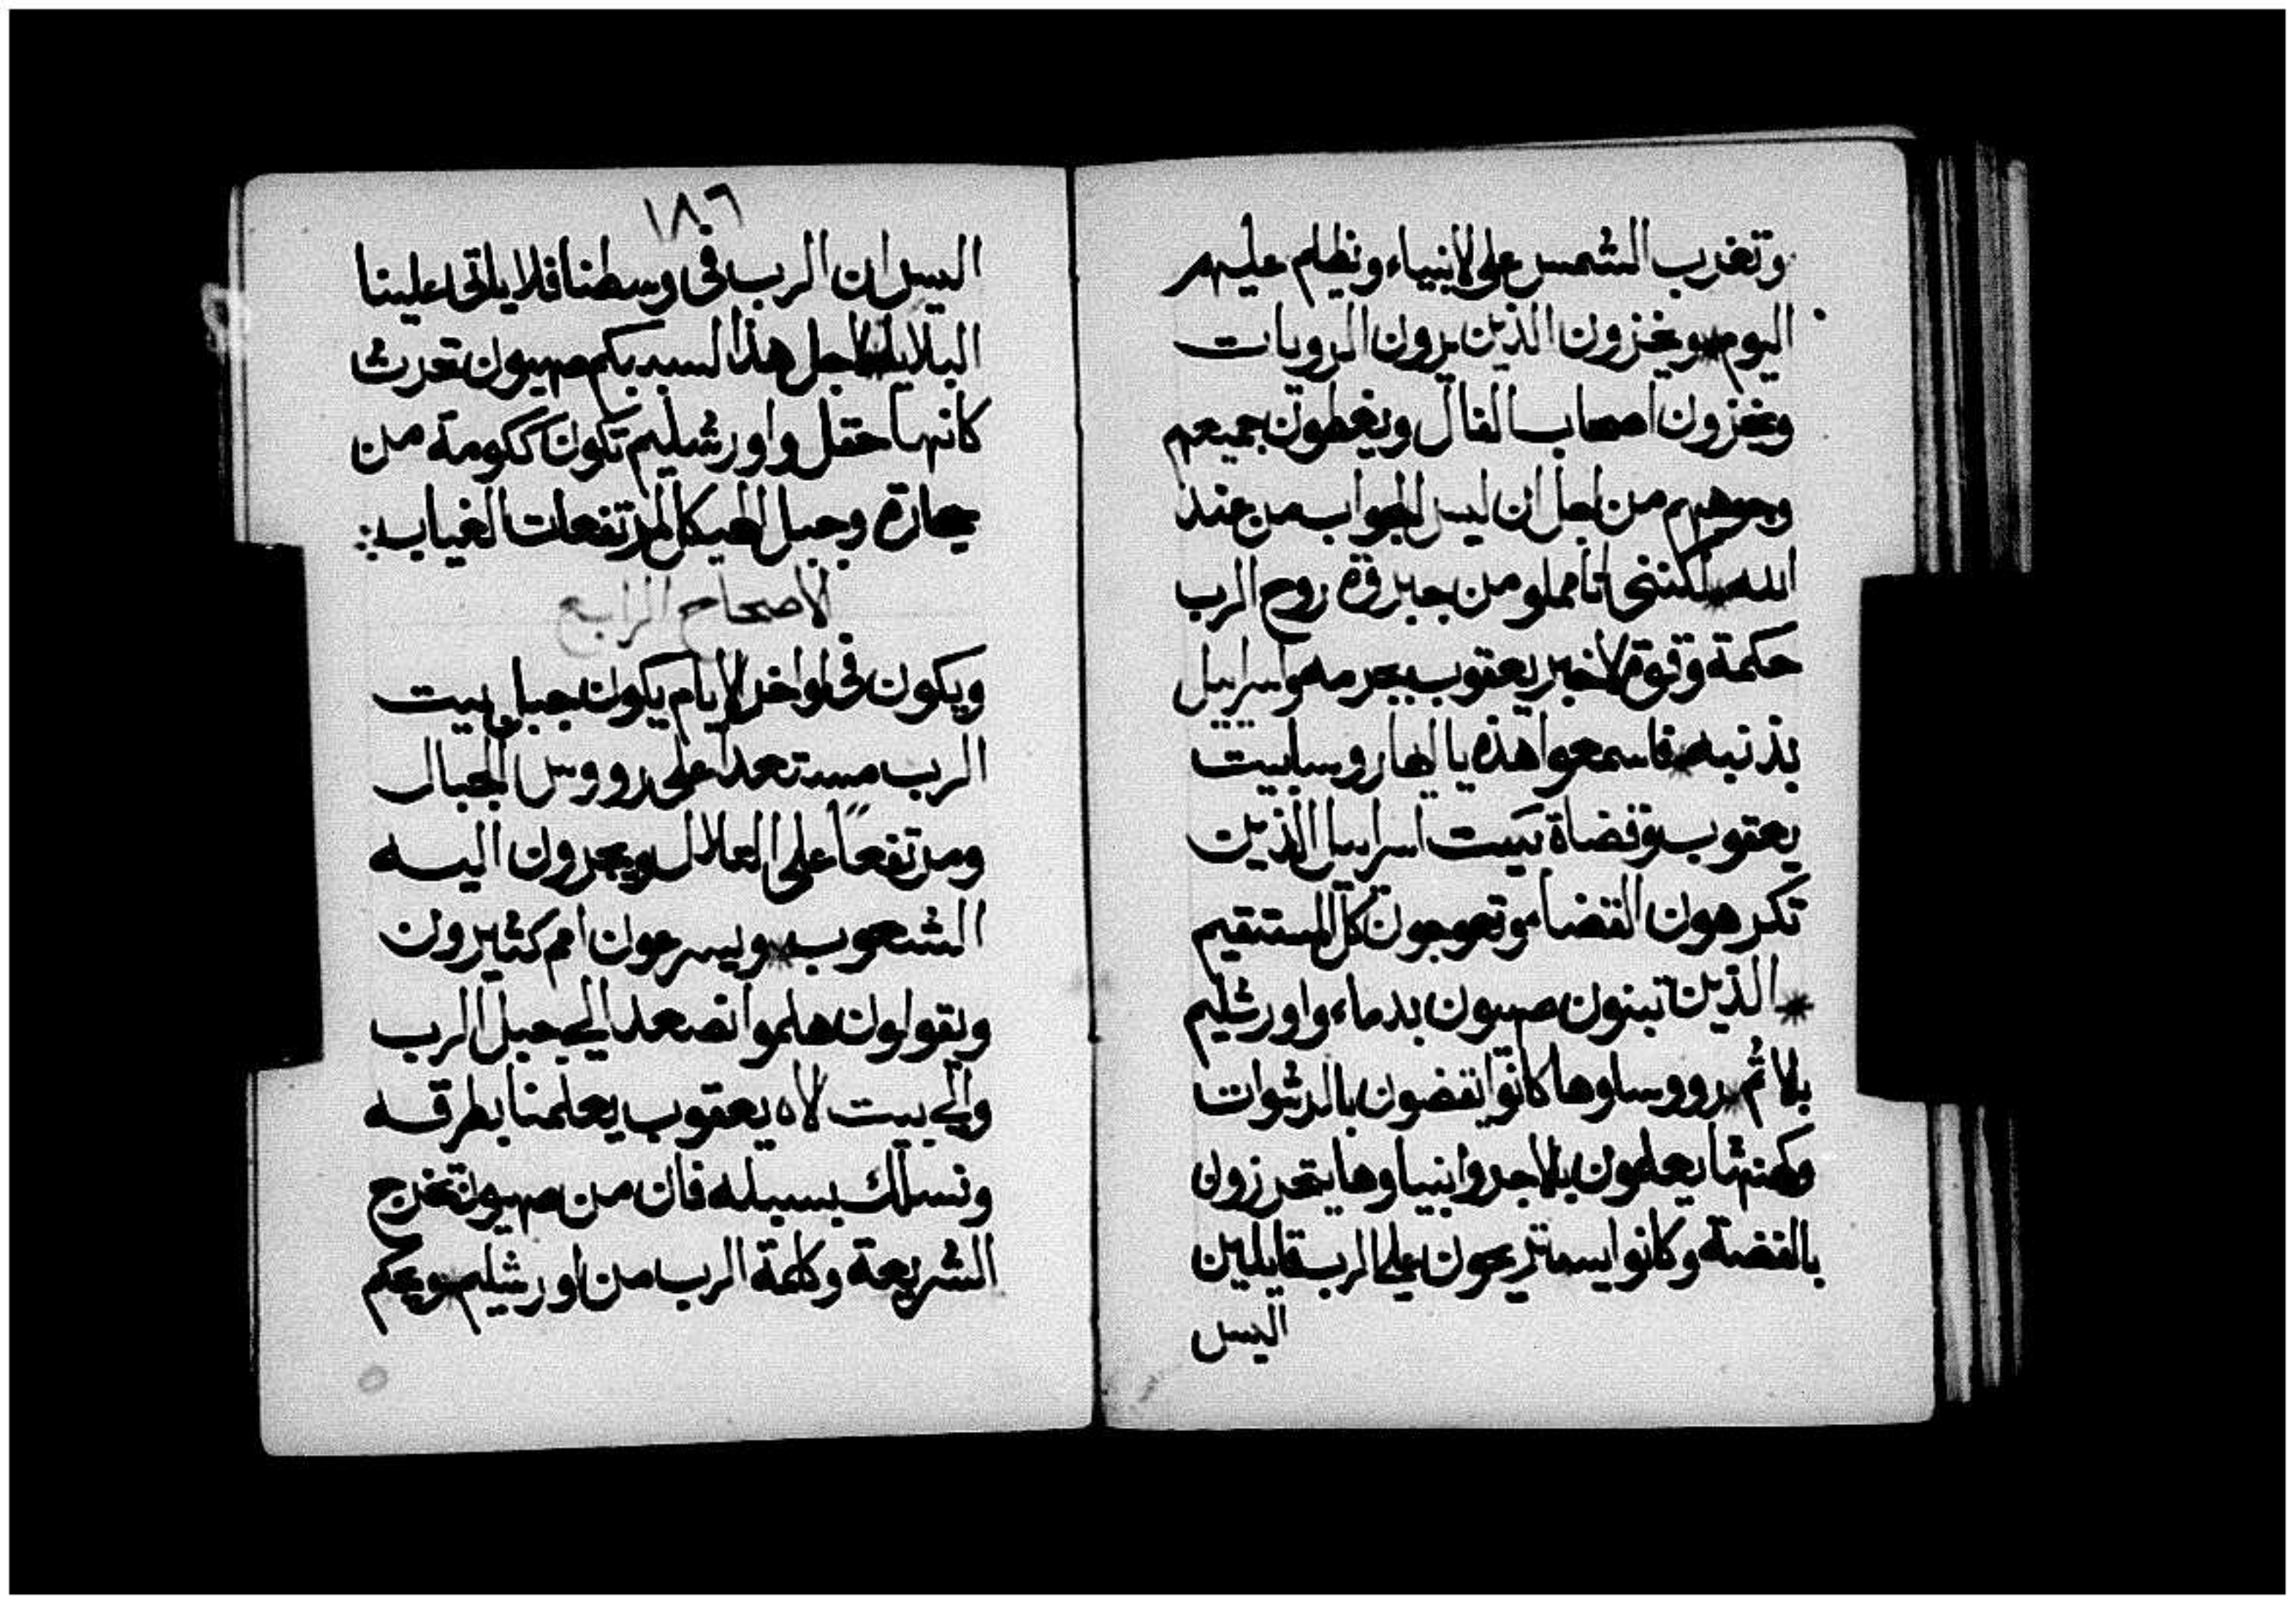 وتغرب الشمس على الانبياء ويظلم عليهم
اليوم * ويخزون الذين يرون الرويات
ويخزون اصحاب الفال ويغطون جميعهم
وجوههم من اجل ان ليس الجواب من عند
الله * لكننى انا مملو من جبروة روح الرب
حكمة وقوة لاخبر يعقوب بجرمه واسراييل
بذنبه * فاسمعوا هذه يا ايها روسا بيت
يعقوب وقضاة بيت اسراييل الذين
تكرهون القضاء وتعوجون كل المستقيم
* الذين تبنون صهيون بدماء واورشليم
بلاثم * رووساوها كانوا يقضون بالرشوات
وكهنتها يعلمون بالاجر وانبياوها يتحرزون
بالفضة وكانوا يستريحون على الرب قايلين
اليس
١٨٦
اليس ان الرب فى وسطنا فلا ياتى علينا
البلايا * لاجل هذا السبب بكم صهيون تحرث
كانها حقل واورشليم تكون ككومة من
حجارة وجبل الهيكل المرتفعات الغياب :
الاصحاح الرابع
ويكون فى اواخر الايام يكون جبل بيت
الرب مستعداً على رووس الجبال
ومرتفعاً على التلال ويجرون اليه
الشعوب * ويسرعون امم كثيرون
ويقولون هلموا نصعد الى جبل الرب
والى بيت الاه يعقوب يعلمنا بطرقه
ونسلك بسبيله فان من صهيون تخرج
الشريعة وكلمة الرب من اورشليم * ويحكم